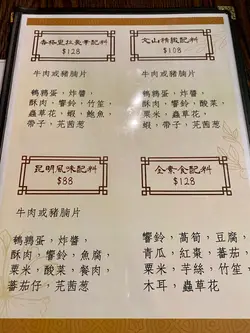 香格里拉豪華配料
$128
牛肉或豬腩片
鵪鶉蛋,炸醬,
酥肉,響鈴,竹笙,
蟲草花,蝦,鮑魚,
帶子,芫茜葱
大山精緻配料
$108
牛肉或豬腩片
鵪鶉蛋,炸醬,
響鈴,酸菜,
粟米,蟲草花,
蝦,帶子,芫茜葱
昆明風味配料
$88
牛肉或豬腩片
鵪鶉蛋,炸醬,
酥肉,響鈴,魚腐,
粟米,酸菜,餐肉,
蕃茄仔,芫茜葱
全素食配料
$128
響鈴,萵筍,豆腐,
青瓜,紅棗,蕃茄,
粟米,芋絲,竹笙,
木耳,蟲草花